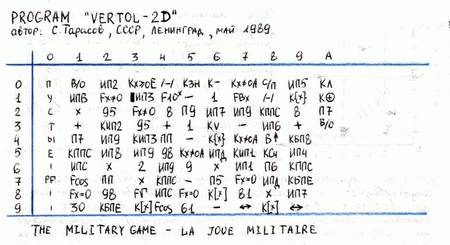 PROGRAM "VERTOL-2D"
автор: С.Тарасов, СССР, ЛЕНИНГРАД, май 1989.
0 1 2 3 4 5 6 7 8 9 A
0 П В/О ИП2 Kx≥0E /-/ КЗН К- Kx≠0A С/П ИП5 КЛ
1 У ИПВ Fx≠0 ИП3 F10ˣ - 1 FBx /-/ К{x} К⊕
2 С x 95 Fx≠0 8 П9 ИП7 ИП9 КППС 8 П7
3 Т + КИП2 95 + 1 KV - ИП6 + В/О
4 Ы П7 ИП9 КИП3 ПП - К{x} Kx≠0A В↑ КБП8
5 Е КППС ИП8 ИП9 98 Kx≠0A ИПД КИП1 КСч ИП4
6 ! ИПС x 2 ИП9 x ИП1 П6 КППС
7 РР Fcos ПП x КППС - П5 Fx=0 ИПД КБПЕ
8 ! Fx=0 98 ИПС Fx=0 К[x] 81 x ИП7
9 ! 30 КБПЕ К[x] Fcos 61 - ↔ К[x] ↔
THE MILITARY GAME - LA JOUE MILITAIRE